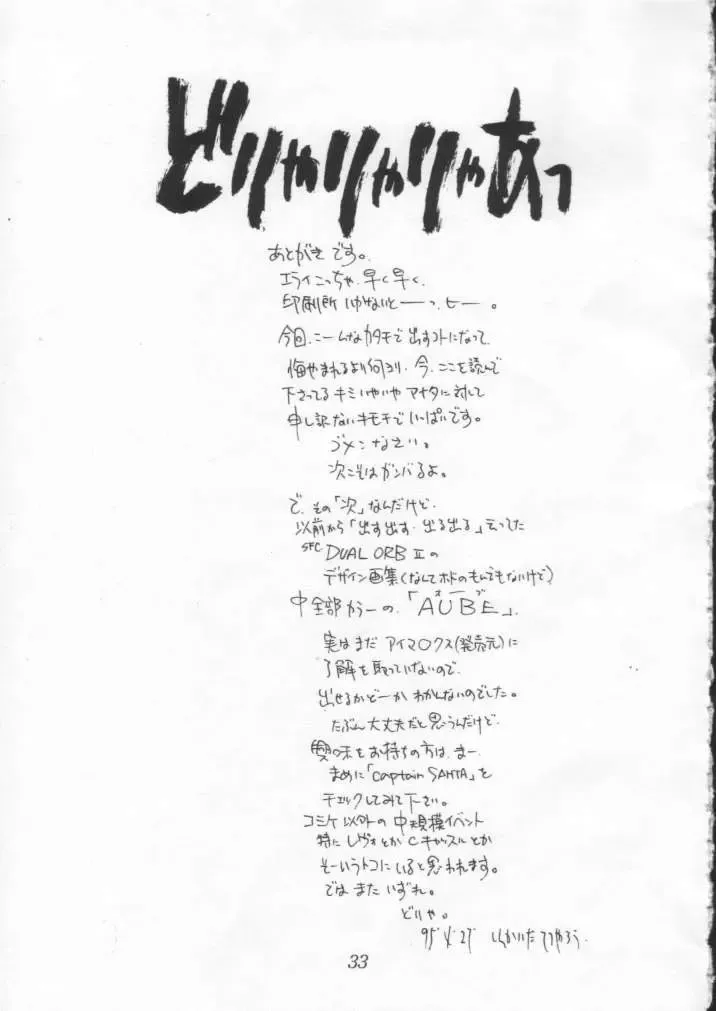 どりゃりゃりゃあっ
あとがきです。
エライこっちゃ、早く早く、
印刷所いかないとーーっ、ヒー。
今回、こーんなカタチで出すコトになって
悔やまれるより何より、今、ここを読んで
下さってるキミいやいやアナタに対して
申し訳ないキモチでいっぱいです。
ゴメンなさい。
次こそはガンバるよ。
で、その「次」なんだけど、
以前から「出す出す、出る出る」云ってた
SFC DUAL ORB Ⅱの
デザイン画集(なんてホドのもんでもないけど)
中全部カラーの、「AUBE」、
オーブ
実はまだ アイマ○クス(発売元)に
了解を取っていないので、
出せるかどーか わかんないのでした。
たぶん大丈夫だと思うんだけど、
興味をお持ちの方は、まー
まめに「Captain SANTA」を
チェックしてみて下さい。
コミケ以外の中規模イベント
特にレヴォとかCキャッスルとか
そーいうトコにいると思われます。
では また いずれ。
どりゃ。
95' 4' 27'
33